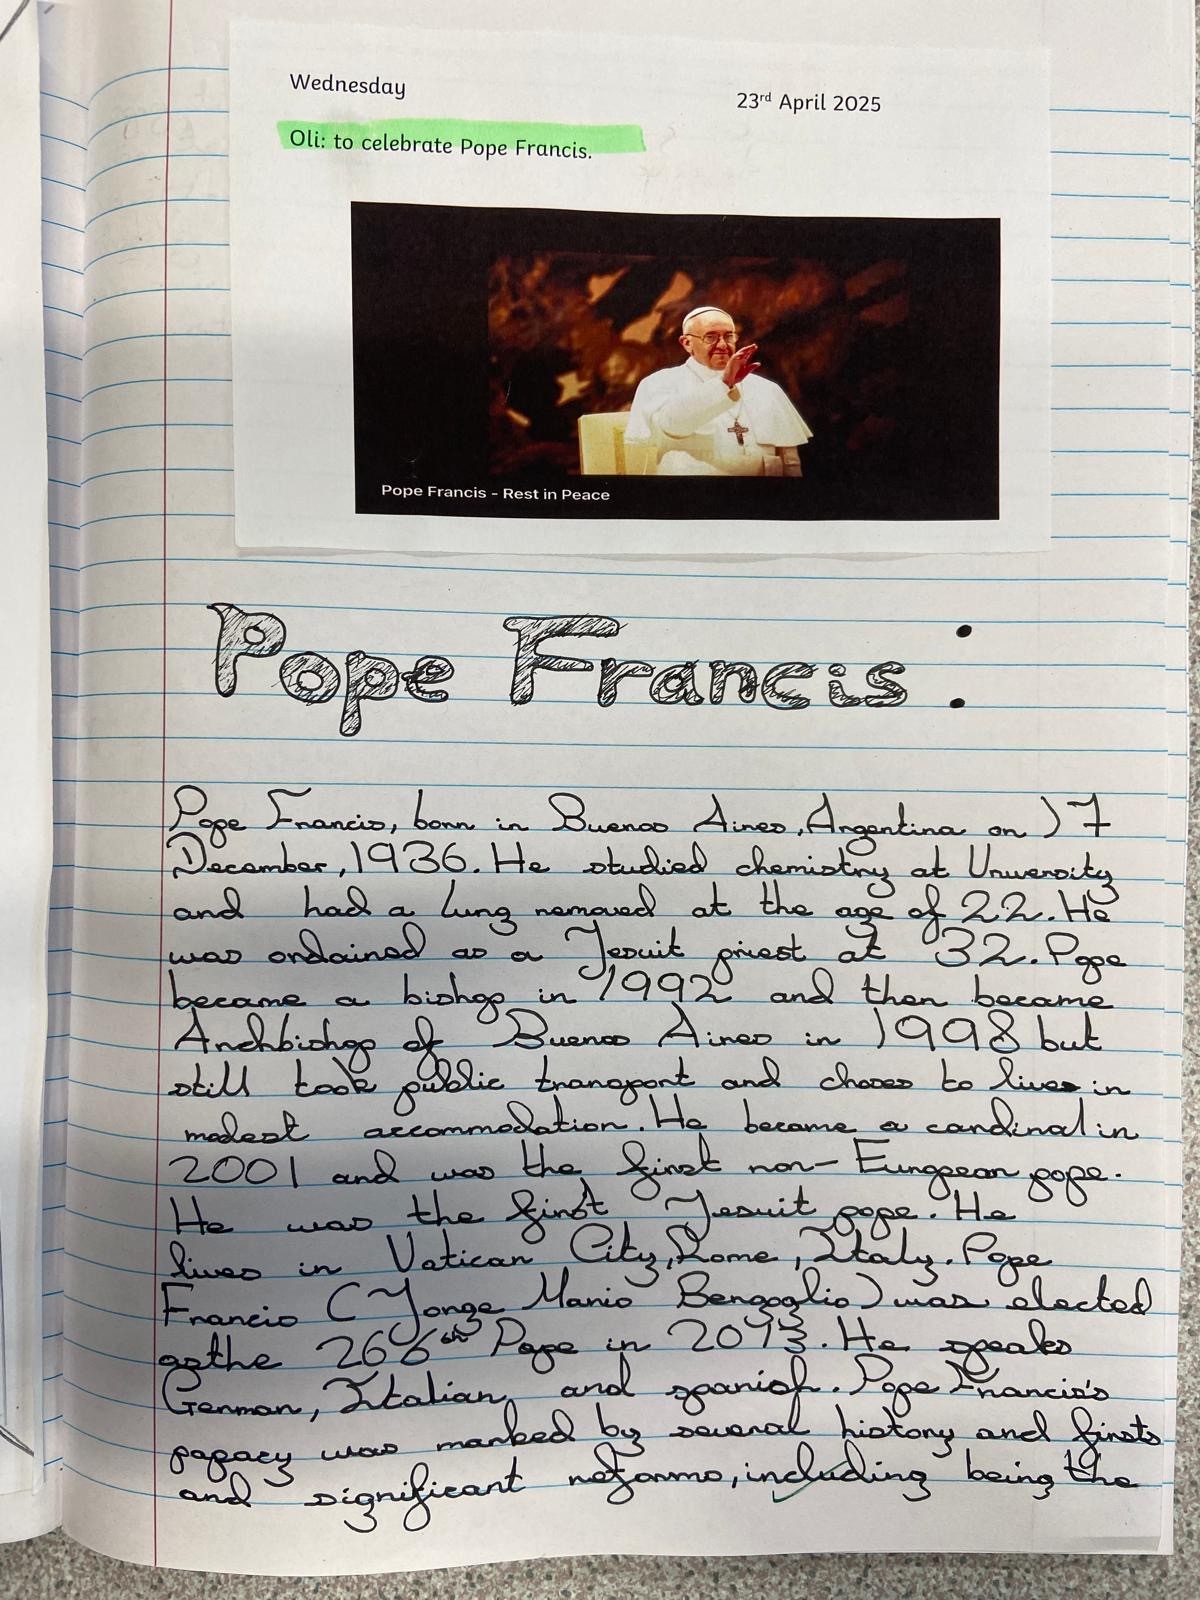 Wednesday
23rd April 2025
Oli: to celebrate Pope Francis.
Pope Francis - Rest in Peace
Pope Francis :
Pope Francis, born in Buenos Aires, Argentina on 17
December, 1936. He studied chemistry at University
and had a lung removed at the age of 22. He
was ordained as a Jesuit priest at 32. Pope
became a bishop in 1992 and then became
Archbishop of Buenos Aires in 1998 but
still took public transport and choses to lives in
modest accommodation. He became a cardinal in
2001 and was the first non-European pope.
He was the first Jesuit pope. He
lives in Vatican City, Rome, Italy. Pope
Francis (Jorge Mario Bergoglio) was elected
as the 266th Pope in 2013. He speaks
German, Italian and spanish. Pope Francis's
papacy was marked by several history and firsts
and significant reforms, including being the